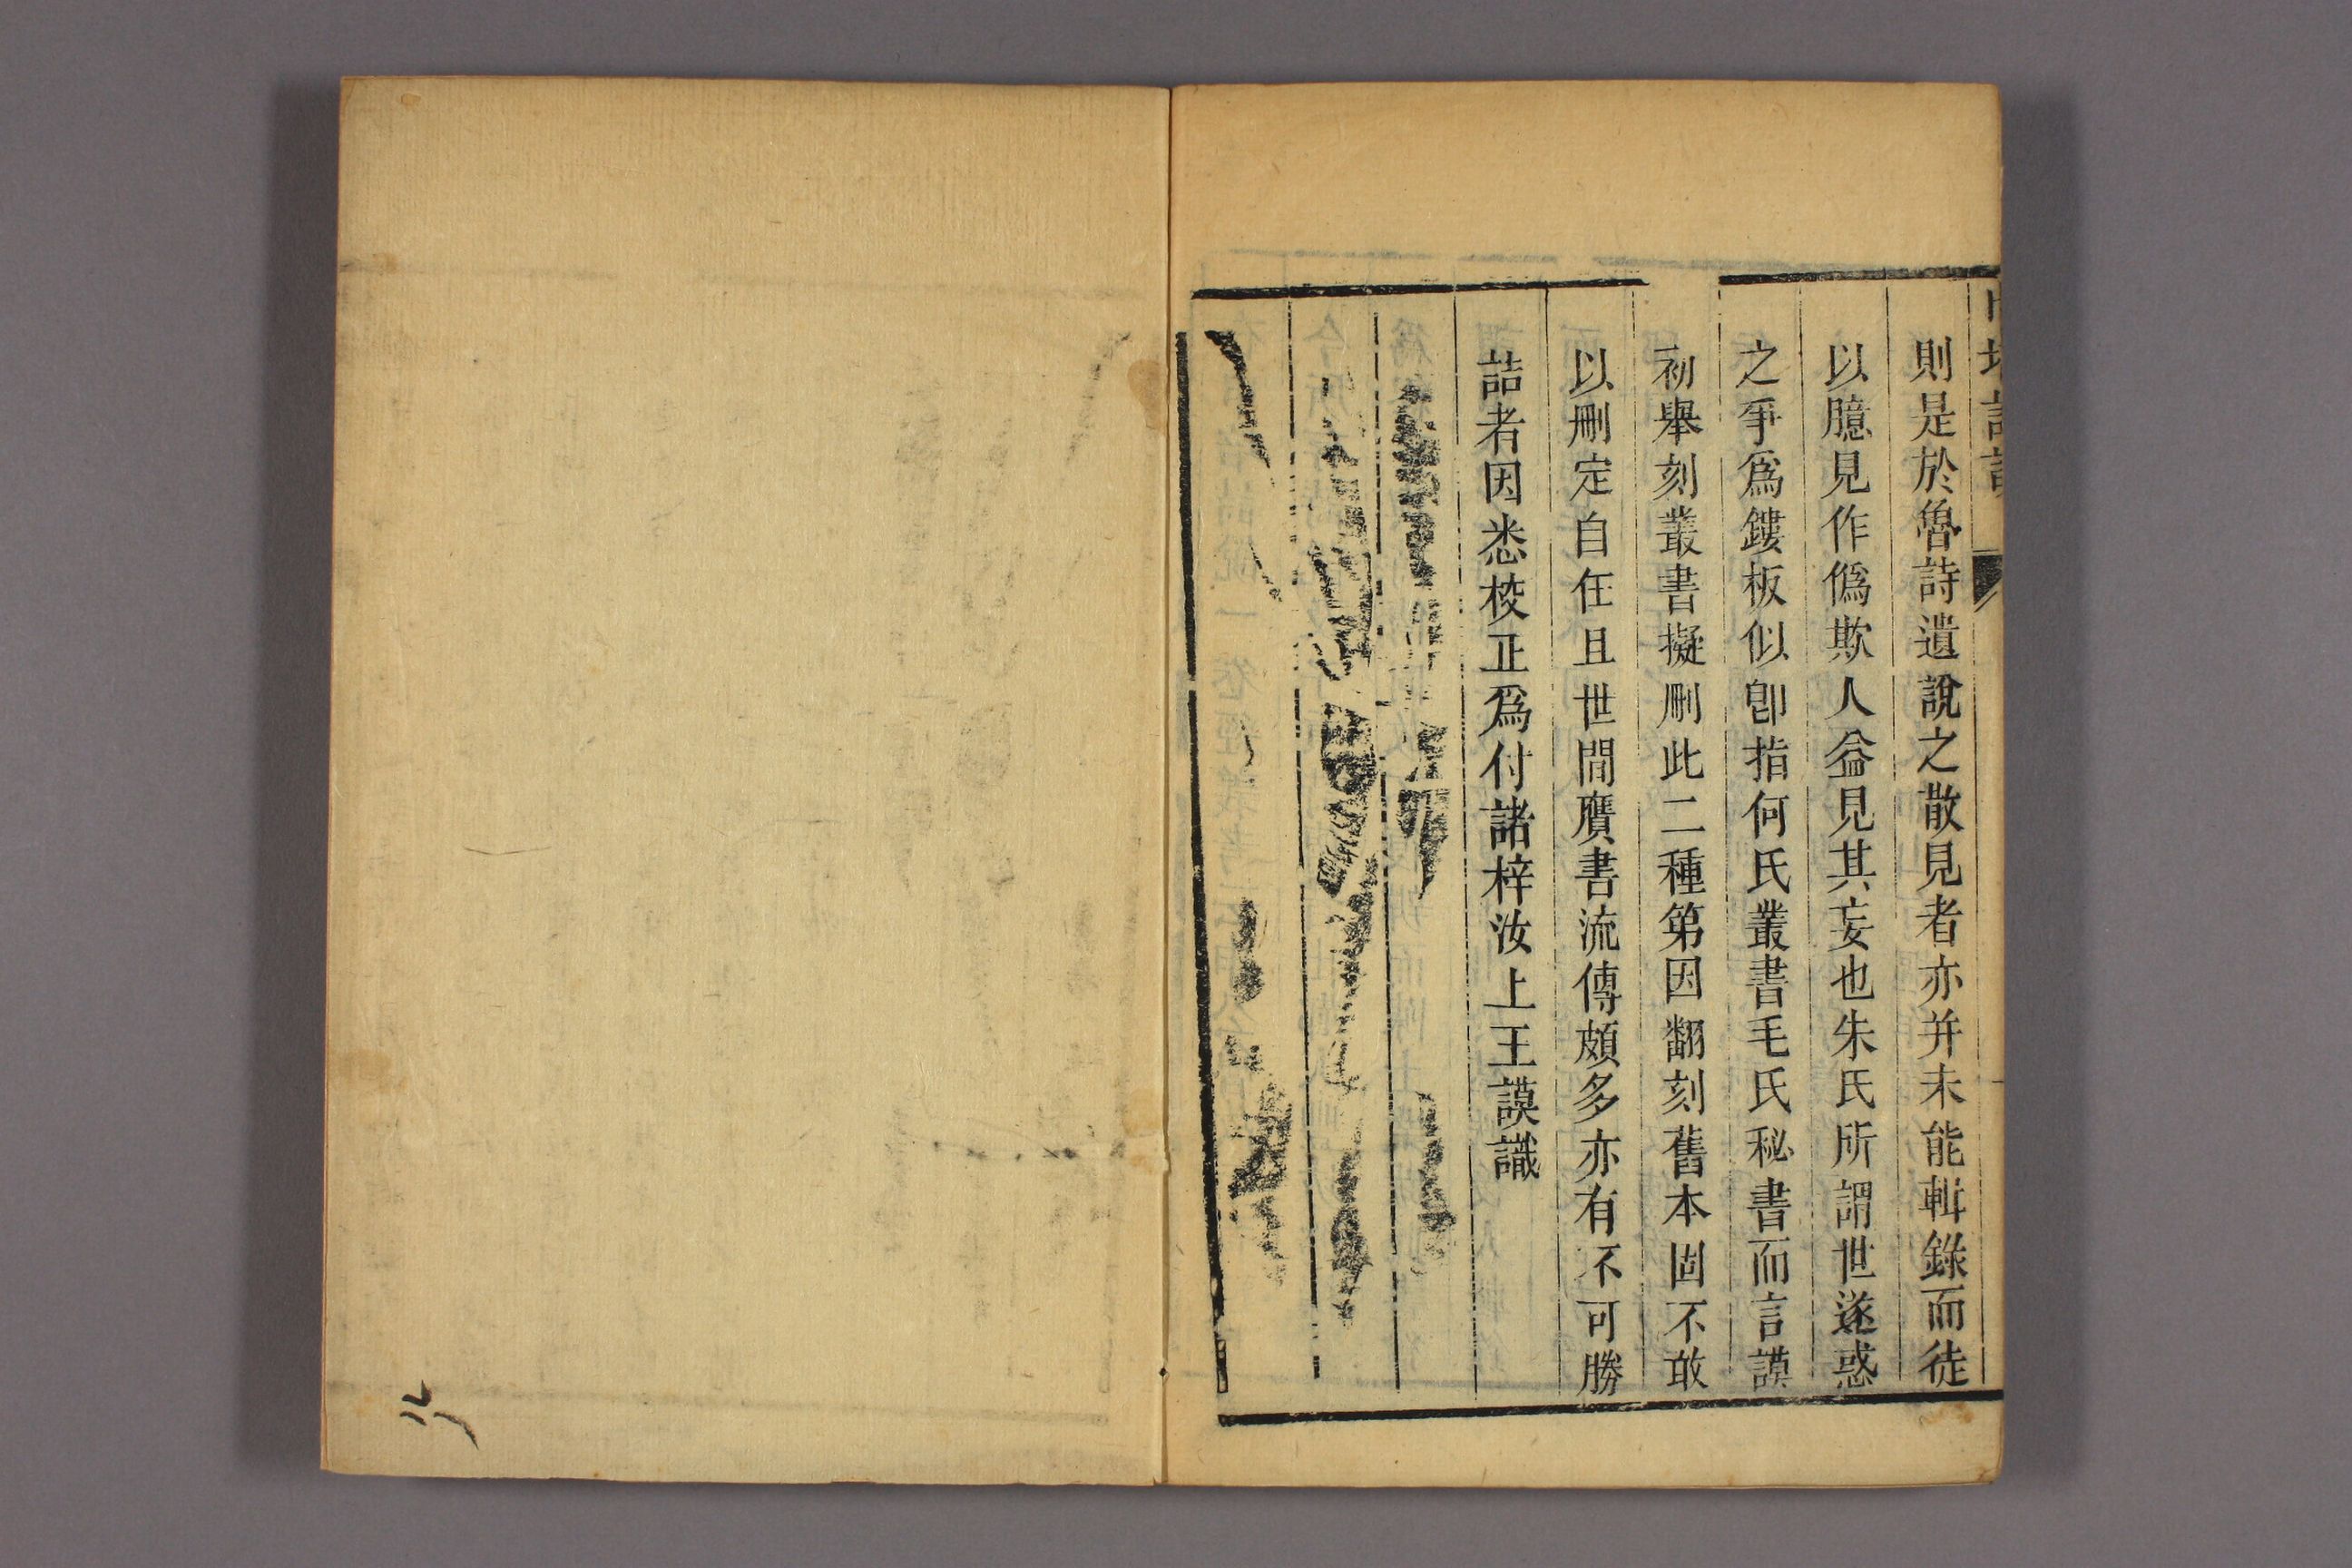 則是於魯詩遺說之散見者亦并未能輯錄而徒
以臆見作僞欺人益見其妄也朱氏所謂世遂惑
之爭爲鏤板似卽指何氏叢書毛氏秘書而言謨
初舉刻叢書擬刪此二種第因翻刻舊本固不敢
以刪定自任且世間贗書流傳頗多亦有不可勝
詰者因悉校正爲付諸梓汝上王謨識